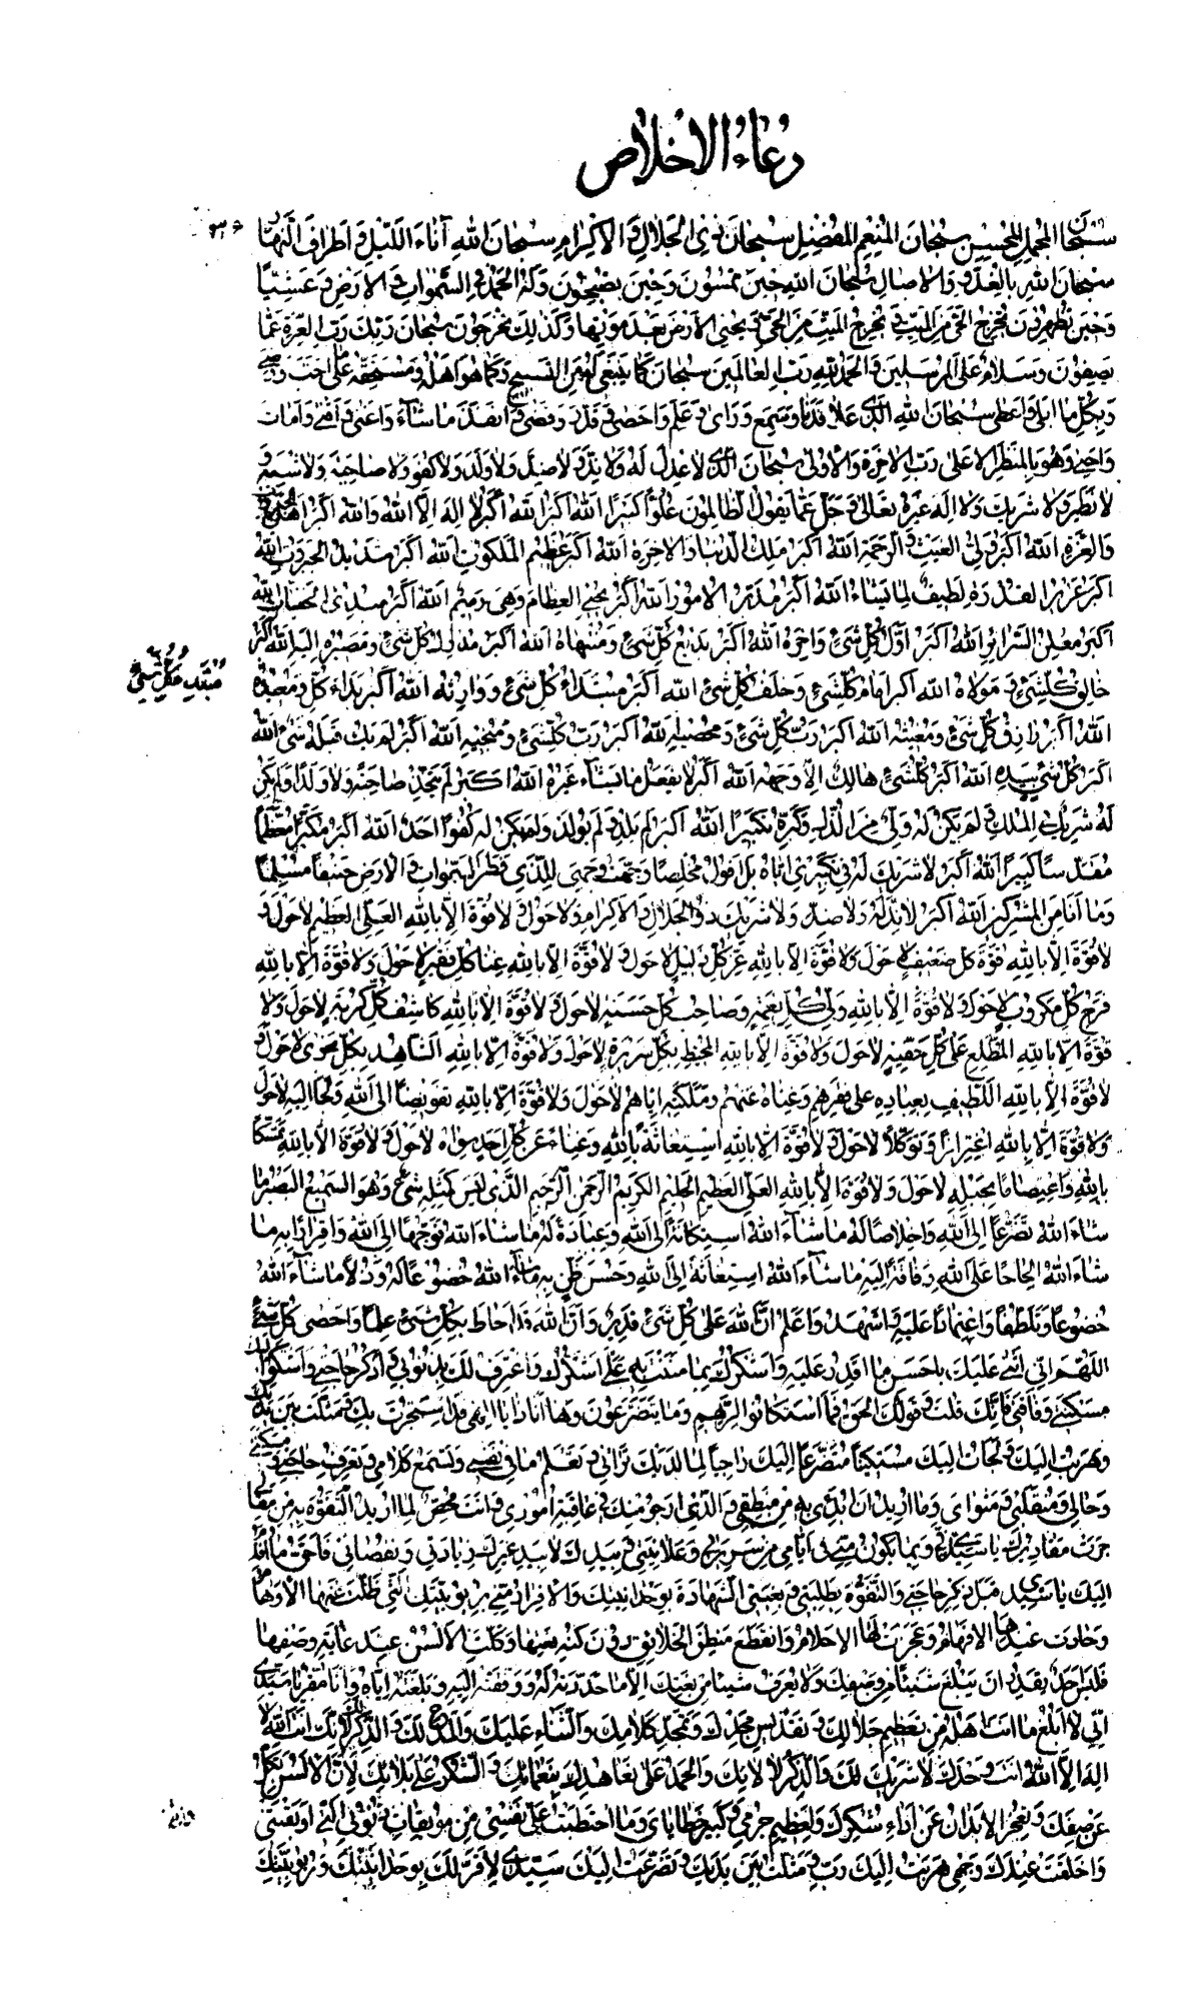 دُعَاءُ الْاِخْلَاصِ
سُبْحَانَ المجمل المحسن سُبْحَانَ المُنْعِمِ المُفْضِلِ سُبْحَانَ ذِي الجَلَالِ وَ الاِكْرَامِ سُبْحَانَ اللهِ آنَاءَ اللَّيْلِ وَ اَطْرَافَ النَّهَارِ
سُبْحَانَ اللهِ بِالْغُدُوِّ وَالاصَالِ سُبْحَانَ اللهِ حِينَ تُمْسُونَ وَحِينَ تُصْبِحُونَ وَلَهُ الحَمْدُ فِي السَّمٰوَاتِ وَ الاَرْضِ وَ عَشِيًّا
وَحِينَ تُظْهِرُونَ يُخْرِجُ الحَيَّ مِنَ المَيِّتِ وَ يُخْرِجُ المَيِّتَ مِنَ الحَيِّ وَ يُحْيِي الاَرْضَ بَعْدَ مَوْتِهَا وَكَذٰلِكَ تُخْرَجُونَ سُبْحَانَ رَبِّكَ رَبِّ العِزَّةِ عَمَّا
يَصِفُونَ وَ سَلَامٌ عَلَى المُرْسَلِينَ وَ الحَمْدُ لِلّٰهِ رَبِّ العَالَمِينَ سُبْحَانَ كَمَا يَنْبَغِي لله مِنَ التسبيح وَ كَمَا هُوَ اَهْلُهُ وَ مُسْتَحِقُّهُ عَلَى مَا اَحَبَّ وَ رَضِيَ
وَ بِكُلِّ مَا اَبْلَى وَ اَعْطَى سُبْحَانَ اللهِ الَّذِي عَلَا وَ سَمِعَ وَ رَاى وَ عَلِمَ وَ اَحْصَى وَ قَدَّرَ وَ قَضَى وَ اَنْفَذَ مَا شَاءَ وَ اَغْنَى وَ اَقْنَى وَ اَمَاتَ
وَ اَحْيَى وَ هُوَ بِالمَنْظَرِ الاَعْلَى رَبُّ الاخِرَةِ وَ الاُولَى سُبْحَانَ الَّذِي لَا عَدِيلَ لَهُ وَلَا نِدَّ وَ لَا ضِدَّ وَلَا وَلَدَ وَلَا كُفْوَ وَلَا صَاحِبَةَ وَلَا شَبِيهَ وَ
لَا نَظِيرَ وَ لَا شَرِيكَ وَلَا اِلٰهَ غَيْرُهُ تَعَالَى وَ جَلَّ عَمَّا يَقُولُ الظَّالِمُونَ عُلُوًّا كَبِيرًا اَللهُ اَكْبَرُ اَللهُ اَكْبَرُ لَا اِلٰهَ اِلَّا اللهُ وَاللهُ اَكْبَرُ
وَ العِزَّةِ اَللهُ اَكْبَرُ وَلِيُّ الغَيْثِ وَ الرَّحْمَةِ اَللهُ اَكْبَرُ مَلِكُ الدُّنْيَا وَ الاخِرَةِ اَللهُ اَكْبَرُ عَظِيمُ المَلَكُوتِ اَللهُ اَكْبَرُ شَدِيدُ الجَبَرُوتِ اَللهُ
اَكْبَرُ عَزِيزُ القُدْرَةِ لَطِيفٌ لِمَا يَشَاءُ اَللهُ اَكْبَرُ مُدَبِّرُ الاُمُورِ اَللهُ اَكْبَرُ يُحْيِي العِظَامَ وَهِيَ رَمِيمٌ اَللهُ اَكْبَرُ مُبْدِئُ الخَفِيَّاتِ اَللهُ
اَكْبَرُ مُعْلِنُ السَّرَائِرِ اَللهُ اَكْبَرُ اَوَّلُ كُلِّ شَيْءٍ وَ اخِرُهُ اَللهُ اَكْبَرُ بَدِيعُ كُلِّ شَيْءٍ وَ مُنْتَهَاهُ اَللهُ اَكْبَرُ كُلِّ شَيْءٍ وَ مَصِيرُهُ اِلَيْهِ اَللهُ اَكْبَرُ
خَالِقُ كُلِّ شَيْءٍ وَ مَوْلَاهُ اَللهُ اَكْبَرُ اَمَامَ كُلِّ شَيْءٍ وَ خَلْفَ كُلِّ شَيْءٍ اَللهُ اَكْبَرُ مُبْتَدَأُ كُلِّ شَيْءٍ وَ وَارِثُهُ اَللهُ اَكْبَرُ بَدَاءُ كُلٍّ وَ مُعِيدُهُ
مُبْتَدِي كُلِّ شَيْءٍ
اَللهُ اَكْبَرُ رَازِقُ كُلِّ شَيْءٍ وَ مُغِيثُهُ اَللهُ اَكْبَرُ رَبُّ كُلِّ شَيْءٍ وَ مُحْصِيهِ اَللهُ اَكْبَرُ رَبُّ كُلِّ شَيْءٍ وَ مُنْجِيهِ اَللهُ اَكْبَرُ لَمْ يَكُ قَبْلَهُ شَيْءٌ اَللهُ
اَكْبَرُ كُلُّ شَيْءٍ بِيَدِهِ اَللهُ اَكْبَرُ كُلُّ شَيْءٍ هَالِكٌ اِلَّا وَجْهَهُ اَللهُ اَكْبَرُ لَا يَفْعَلُ مَا يَشَاءُ غَيْرُهُ اَللهُ اَكْبَرُ لَمْ يَتَّخِذْ صَاحِبَةً وَلَا وَلَدًا وَلَمْ يَكُنْ
لَهُ شَرِيكٌ فِي المُلْكِ وَ لَمْ يَكُنْ لَهُ وَلِيٌّ مِنَ الذُّلِّ وَ كَبِّرْهُ تَكْبِيرًا اَللهُ اَكْبَرُ لَمْ يَلِدْ وَ لَمْ يُولَدْ وَ لَمْ يَكُنْ لَهُ كُفُوًا اَحَدٌ اَللهُ اَكْبَرُ مُكَبَّرًا مُعَظَّمًا
مُقَدَّسًا كَبِيرًا اَللهُ اَكْبَرُ لَا شَرِيكَ لَهُ فِي تَكْبِيرِي اِيَّاهُ بَلْ اَقُولُ مُخْلِصًا وَجَّهْتُ وَجْهِيَ لِلَّذِي فَطَرَ السَّمٰوَاتِ وَ الاَرْضَ حَنِيفًا مُسْلِمًا
وَ مَا اَنَا مِنَ المُشْرِكِينَ اَللهُ اَكْبَرُ لَا نِدَّ لَهُ وَلَا ضِدَّ وَ لَا شَرِيكَ ذُو الجَلَالِ وَ الاِكْرَامِ وَ لَا حَوْلَ وَ لَا قُوَّةَ اِلَّا بِاللهِ العَلِيِّ العَظِيمِ لَا حَوْلَ وَ
لَا قُوَّةَ اِلَّا بِاللهِ قُوَّةِ كُلِّ ضَعِيفٍ لَا حَوْلَ وَلَا قُوَّةَ اِلَّا بِاللهِ عِزِّ كُلِّ ذَلِيلٍ لَا حَوْلَ وَ لَا قُوَّةَ اِلَّا بِاللهِ غِنَا كُلِّ فَقِيرٍ لَا حَوْلَ وَلَا قُوَّةَ اِلَّا بِاللهِ
فَرَجِ كُلِّ مَكْرُوبٍ لَا حَوْلَ وَ لَا قُوَّةَ اِلَّا بِاللهِ وَلِيِّ كُلِّ نِعْمَةٍ وَ صَاحِبِ كُلِّ حَسَنَةٍ لَا حَوْلَ وَ لَا قُوَّةَ اِلَّا بِاللهِ كَاشِفِ كُلِّ كُرْبَةٍ لَا حَوْلَ وَلَا
قُوَّةَ اِلَّا بِاللهِ المُطَّلِعِ عَلَى كُلِّ خَفِيَّةٍ لَا حَوْلَ وَلَا قُوَّةَ اِلَّا بِاللهِ المُحِيطِ بِكُلِّ سَرِيرَةٍ لَا حَوْلَ وَلَا قُوَّةَ اِلَّا بِاللهِ الشَّاهِدِ بِكُلِّ نَجْوَى لَا حَوْلَ وَ
لَا قُوَّةَ اِلَّا بِاللهِ اللَّطِيفِ بِعِبَادِهِ عَلَى فَقْرِهِمْ وَ غِنَاهُ عَنْهُمْ وَ مَلَكَتِهِ اِيَّاهُمْ لَا حَوْلَ وَلَا قُوَّةَ اِلَّا بِاللهِ تَفْوِيضًا اِلَى اللهِ وَ لَجَأً اِلَيْهِ لَا حَوْلَ
وَلَا قُوَّةَ اِلَّا بِاللهِ اغْتِرَارًا وَ تَوَكُّلًا لَا حَوْلَ وَ لَا قُوَّةَ اِلَّا بِاللهِ اسْتِغَاثَةً بِاللهِ وَ غِنَاءً عَنْ كُلِّ اَحَدٍ سِوَاهُ لَا حَوْلَ وَ لَا قُوَّةَ اِلَّا بِاللهِ تَمَسُّكًا
بِاللهِ وَ اعْتِصَامًا بِحَبْلِهِ لَا حَوْلَ وَ لَا قُوَّةَ اِلَّا بِاللهِ العَلِيِّ العَظِيمِ الحَلِيمِ الكَرِيمِ الرَّحْمٰنِ الرَّحِيمِ الَّذِي لَيْسَ كَمِثْلِهِ شَيْءٌ وَهُوَ السَّمِيعُ البَصِيرُ مَا
شَاءَ اللهُ تَضَرُّعًا اِلَى اللهِ وَ اِخْلَاصًا لَهُ مَا شَاءَ اللهُ اسْتِكَانَةً اِلَى اللهِ وَ عِبَادَةً لَهُ مَا شَاءَ اللهُ تَوَجُّهًا اِلَى اللهِ وَ اِقْرَارًا بِهِ مَا
شَاءَ اللهُ اِلْحَاحًا عَلَى اللهِ وَ فَاقَةً اِلَيْهِ مَا شَاءَ اللهُ اسْتِغَاثَةً اِلَى اللهِ وَ حُسْنَ ظَنٍّ بِهِ مَا شَاءَ اللهُ خُضُوعًا لَهُ وَ ذُلًّا مَا شَاءَ اللهُ
خُضُوعًا وَ تَلَطُّفًا وَ اعْتِمَادًا عَلَيْهِ وَ اَشْهَدُ وَ اَعْلَمُ اَنَّ اللهَ عَلَى كُلِّ شَيْءٍ قَدِيرٌ وَ اَنَّ اللهَ قَدْ اَحَاطَ بِكُلِّ شَيْءٍ عِلْمًا وَ اَحْصَى كُلَّ شَيْءٍ
اَللّٰهُمَّ اِنِّي اُثْنِي عَلَيْكَ بِاَحْسَنِ مَا اَقْدِرُ عَلَيْهِ وَ اَشْكُرُكَ بِمَا مَنَنْتَ بِهِ عَلَيَّ اَشْكُرُكَ وَ اَعْتَرِفُ لَكَ بِذُنُوبِي وَ اَذْكُرُ حَاجَتِي وَ اَشْكُو اِلَيْكَ
مَسْكَنَتِي وَ فَاقَتِي فَاِنَّكَ قُلْتَ وَ قَوْلُكَ الحَقُّ فَمَا اسْتَكَانُوا لِرَبِّهِمْ وَمَا يَتَضَرَّعُونَ وَهَا اَنَا ذَا يَا اِلٰهِي قَدِ اسْتَجَرْتُ بِكَ وَ تَمَثَّلْتُ بَيْنَ يَدَيْكَ
وَ هَرَبْتُ اِلَيْكَ وَ لَجَأْتُ اِلَيْكَ مُسْتَكِينًا مُتَضَرِّعًا اِلَيْكَ رَاجِيًا لِمَا لَدَيْكَ تَرَانِي وَ تَعْلَمُ مَا فِي نَفْسِي وَ تَسْمَعُ كَلَامِي وَ تَعْرِفُ حَاجَتِي وَ مَسْكَنَتِي
وَ حَالِي وَ مُنْقَلَبِي وَ مَثْوَايَ وَ مَا اُرِيدُ اَنْ اَبْتَدِئَ بِهِ مِنْ مَنْطِقِي وَ الَّذِي اَرْجُو مِنْكَ فِي عَاقِبَةِ اُمُورِي وَ اَنْتَ مُحْصٍ لِمَا اُرِيدُ التَّفَوُّهَ بِهِ مِنْ مَقَالِي
جَرَتْ مَقَادِيرُكَ يَا سَيِّدِي وَ بِمَا يَكُونُ مِنِّي فِي اَيَّامِي مِنْ سَرِيرَتِي وَ عَلَانِيَتِي وَ بِيَدِكَ لَا بِيَدِ غَيْرِكَ زِيَادَتِي وَ نُقْصَانِي فَاَحَقُّ مَا اُقَدِّمُ
اِلَيْكَ يَا سَيِّدِي قَبْلَ ذِكْرِ حَاجَتِي وَ التَّفَوُّهِ بِطَلِبَتِي وَ بُغْيَتِي الشَّهَادَةُ بِوَحْدَانِيَّتِكَ وَ الاِقْرَارُ مِنِّي بِرُبُوبِيَّتِكَ الَّتِي ضَلَّتْ عَنْهَا الاَوْهَامُ
وَ حَارَتْ عِنْدَهَا الاَفْهَامُ وَ عَجَزَتْ لَهَا الاَحْلَامُ وَ انْقَطَعَ مَنْطِقُ الخَلَائِقِ دُونَ كُنْهِ نَعْتِهَا وَ كَلَّتِ الاَلْسُنُ عِنْدَ غَايَةِ وَصْفِهَا
فَلَيْسَ اَحَدٌ يَقْدِرُ اَنْ يَبْلُغَ شَيْئًا مِنْ وَصْفِكَ وَلَا يَعْرِفُ شَيْئًا مِنْ نَعْتِكَ اِلَّا مَا حَدَّدْتَهُ لَهُ وَ وَفَّقْتَهُ اِلَيْهِ وَ بَلَّغْتَهُ اِيَّاهُ وَ اَنَا مُقِرٌّ يَا سَيِّدِي
اَنِّي لَا اَبْلُغُ مَا اَنْتَ اَهْلُهُ مِنْ تَعْظِيمِ جَلَالِكَ وَ تَقْدِيسِ مَجْدِكَ وَ تَمْجِيدِ كَلَامِكَ وَ الثَّنَاءِ عَلَيْكَ وَ المَدْحِ لَكَ وَ الذِّكْرِ لِاَنَّكَ اَنْتَ اللهُ لَا
اِلٰهَ اِلَّا اللهُ اَنْتَ وَحْدَكَ لَا شَرِيكَ لَكَ وَ الذِّكْرِ لِالَائِكَ وَ الحَمْدِ عَلَى تَعَاهُدِكَ بِنَعْمَائِكَ وَ الشُّكْرِ عَلَى بَلَائِكَ لِاَنَّ الاَلْسُنَ تَكِلُّ
عَنْ صِفَتِكَ وَ تَعْجِزُ الاَبْدَانُ عَنْ اَدَاءِ شُكْرِكَ وَ لِعَظِيمِ جُرْمِي وَ كَبِيرِ خَطَايَايَ وَ مَا احْتَطَبْتُ عَلَى نَفْسِي مِنْ مُوبِقَاتِ ذُنُوبِي الَّتِي اَوْبَقَتْنِي
وَ اَخْلَقَتْ عِنْدَكَ وَجْهِي هَرَبْتُ اِلَيْكَ رَبِّ وَ مَثَلْتُ بَيْنَ يَدَيْكَ وَ تَضَرَّعْتُ اِلَيْكَ سَيِّدِي لِاُقِرَّ لَكَ بِوَحْدَانِيَّتِكَ وَ رُبُوبِيَّتِكَ